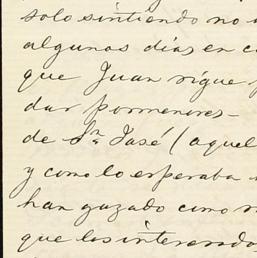 solo sintiendo no
algunos dias en
que Juan sigue
dar pormenores_
de Sn. José (aquel
y como lo esperaba
han gozado como
que los interesado